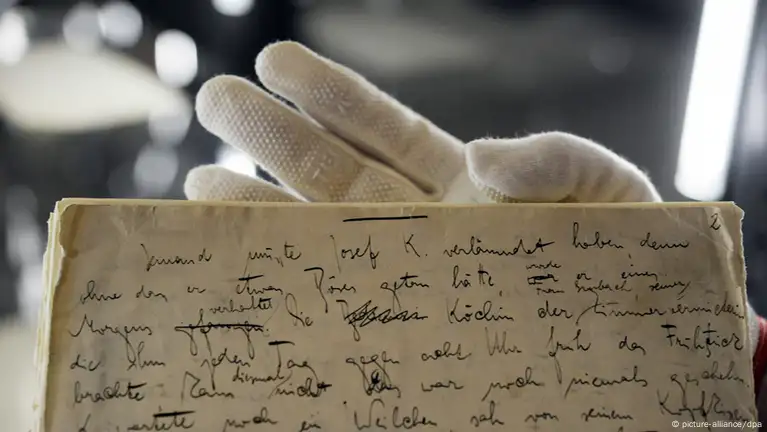 2
Jemand musste Josef K. verläumdet haben, denn
ohne dass er etwas Böses getan hätte, wurde er eines
Morgens verhaftet. Die Köchin der Frau Grubach seiner Zimmervermieterin
die ihm jeden Tag gegen acht Uhr früh das Frühstück
brachte kam diesmal nicht. Das war noch niemals geschehn.
K. wartete noch ein Weilchen, sah von seinem Kopfkissen
© picture-alliance/dpa